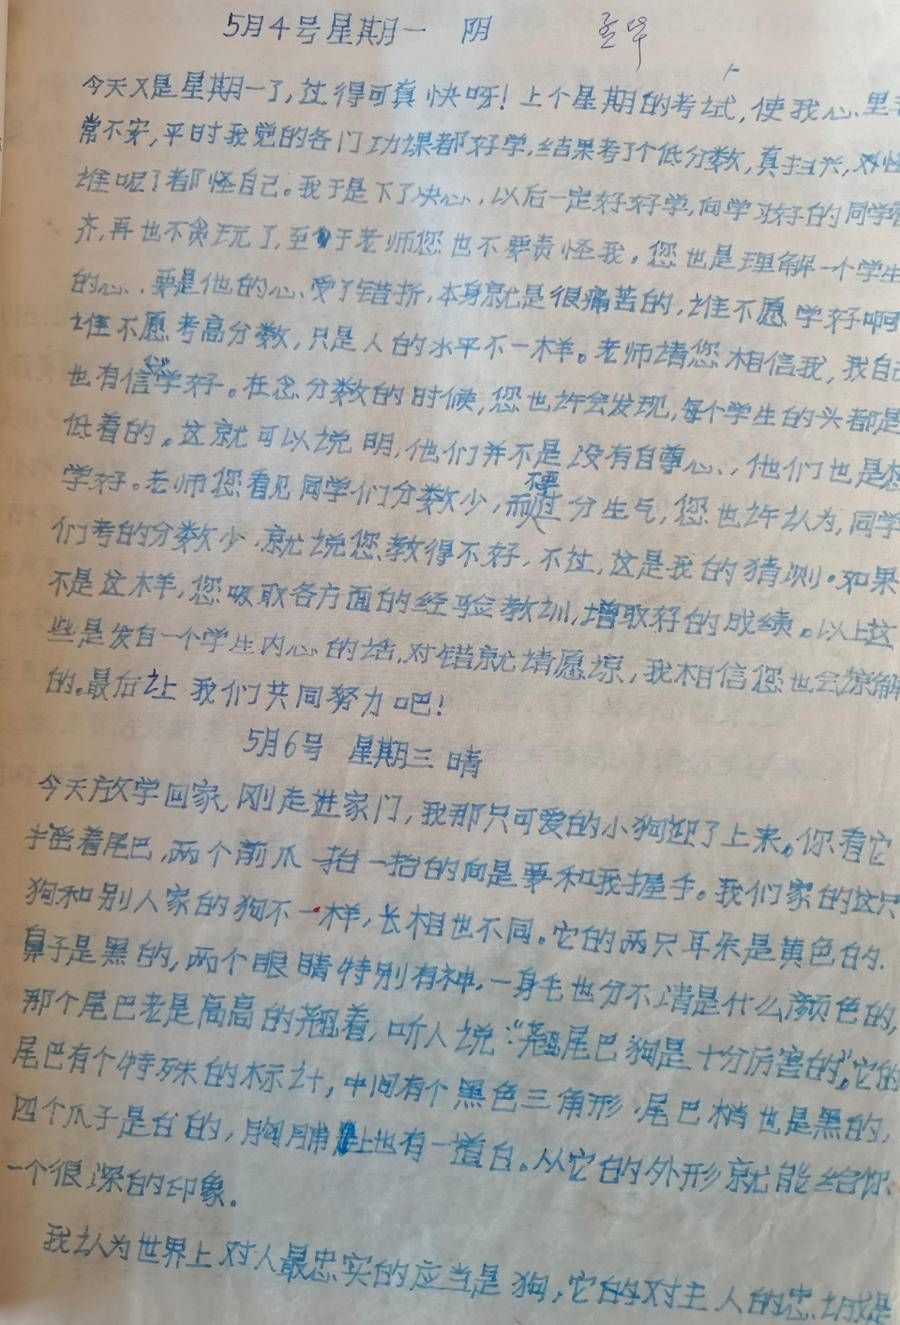 5月4号星期一 阴
今天又是星期一了,过得可真快呀!上个星期的考试,使我心里
常不安,平时我觉的各门功课都好学,结果考了个低分数,真扫兴,
谁呢?都怪自己。我于是下了决心,以后一定好好学,向学习好的同学
齐,再也不贪玩了,至于老师您也不要责怪我。您也是理解一个学生
的心,要是他的心受了错折,本身就是很痛苦的,谁不愿学好啊
谁不愿考高分数,只是人的水平不一样。老师请您相信我,我自己
也有信心学好。在念分数的时候,您也许会发现,每个学生的头都是
低着的。这就可以说明,他们并不是没有自尊心,他们也是想
学好。老师您看见同学们分数少,而不要过分生气,您也许认为,同学
们考的分数少,就说您教得不好,不过,这是我的猜测。如果
不是这样,您吸取各方面的经验教训,增取好的成绩。以上这
些是发自一个学生内心的话,对错就请愿谅,我相信您也会谅解
的。最后让我们共同努力吧!
5月6号 星期三 晴
今天放学回家,刚走进家门,我那只可爱的小狗迎了上来。你看它
着尾巴,两个前爪一抬一抬的向是要和我握手。我们家的这只
狗和别人家的狗不一样,长相也不同。它的两只耳朵是黄色的.
鼻子是黑的,两个眼睛特别有神,一身毛也分不清是什么颜色的,
那个尾巴老是高高的翘着,听人说:“翘尾巴狗是十分厉害的”,它的
尾巴有个特殊的标计,中间有个黑色三角形,尾巴梢也是黑的,
四个爪子是白的,胸脯上也有一道白。从它的外形就能给你
一个很深的印象。
我认为世界上对人最忠实的应当是狗,它的对主人的忠诚是